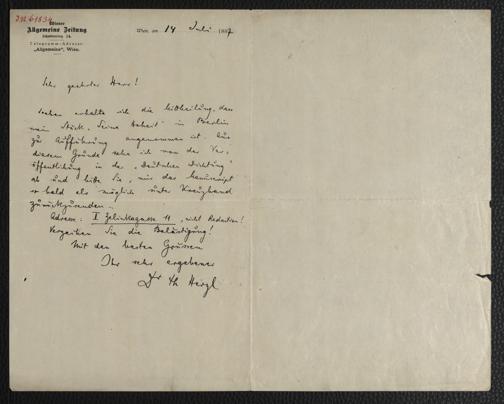 I.N. 61834
Wiener
Allgemeine Zeitung
Schottenring 14.
Telegramm-Adresse
„Allgemeine", Wien.
Wien, am 14 Juli 1887
Sehr geehrter Herr!
Soeben erhalte ich die Mittheilung, dass
mein Stück „Seine Hoheit" in Berlin
zur Aufführung angenommen ist. Aus
diesem Grunde sehe ich von der Ver-
öffentlichung in der „Deutschen Dichtung"
ab und bitte Sie, mir das Manuscript
so bald als möglich unter Kreuzband
zurückzusenden.
Adresse: I Zelinkagasse 11, nicht Redaction!
Verzeihen Sie die Belästigung!
Mit den besten Grüssen
Ihr sehr ergebener
Dr Th Herzl